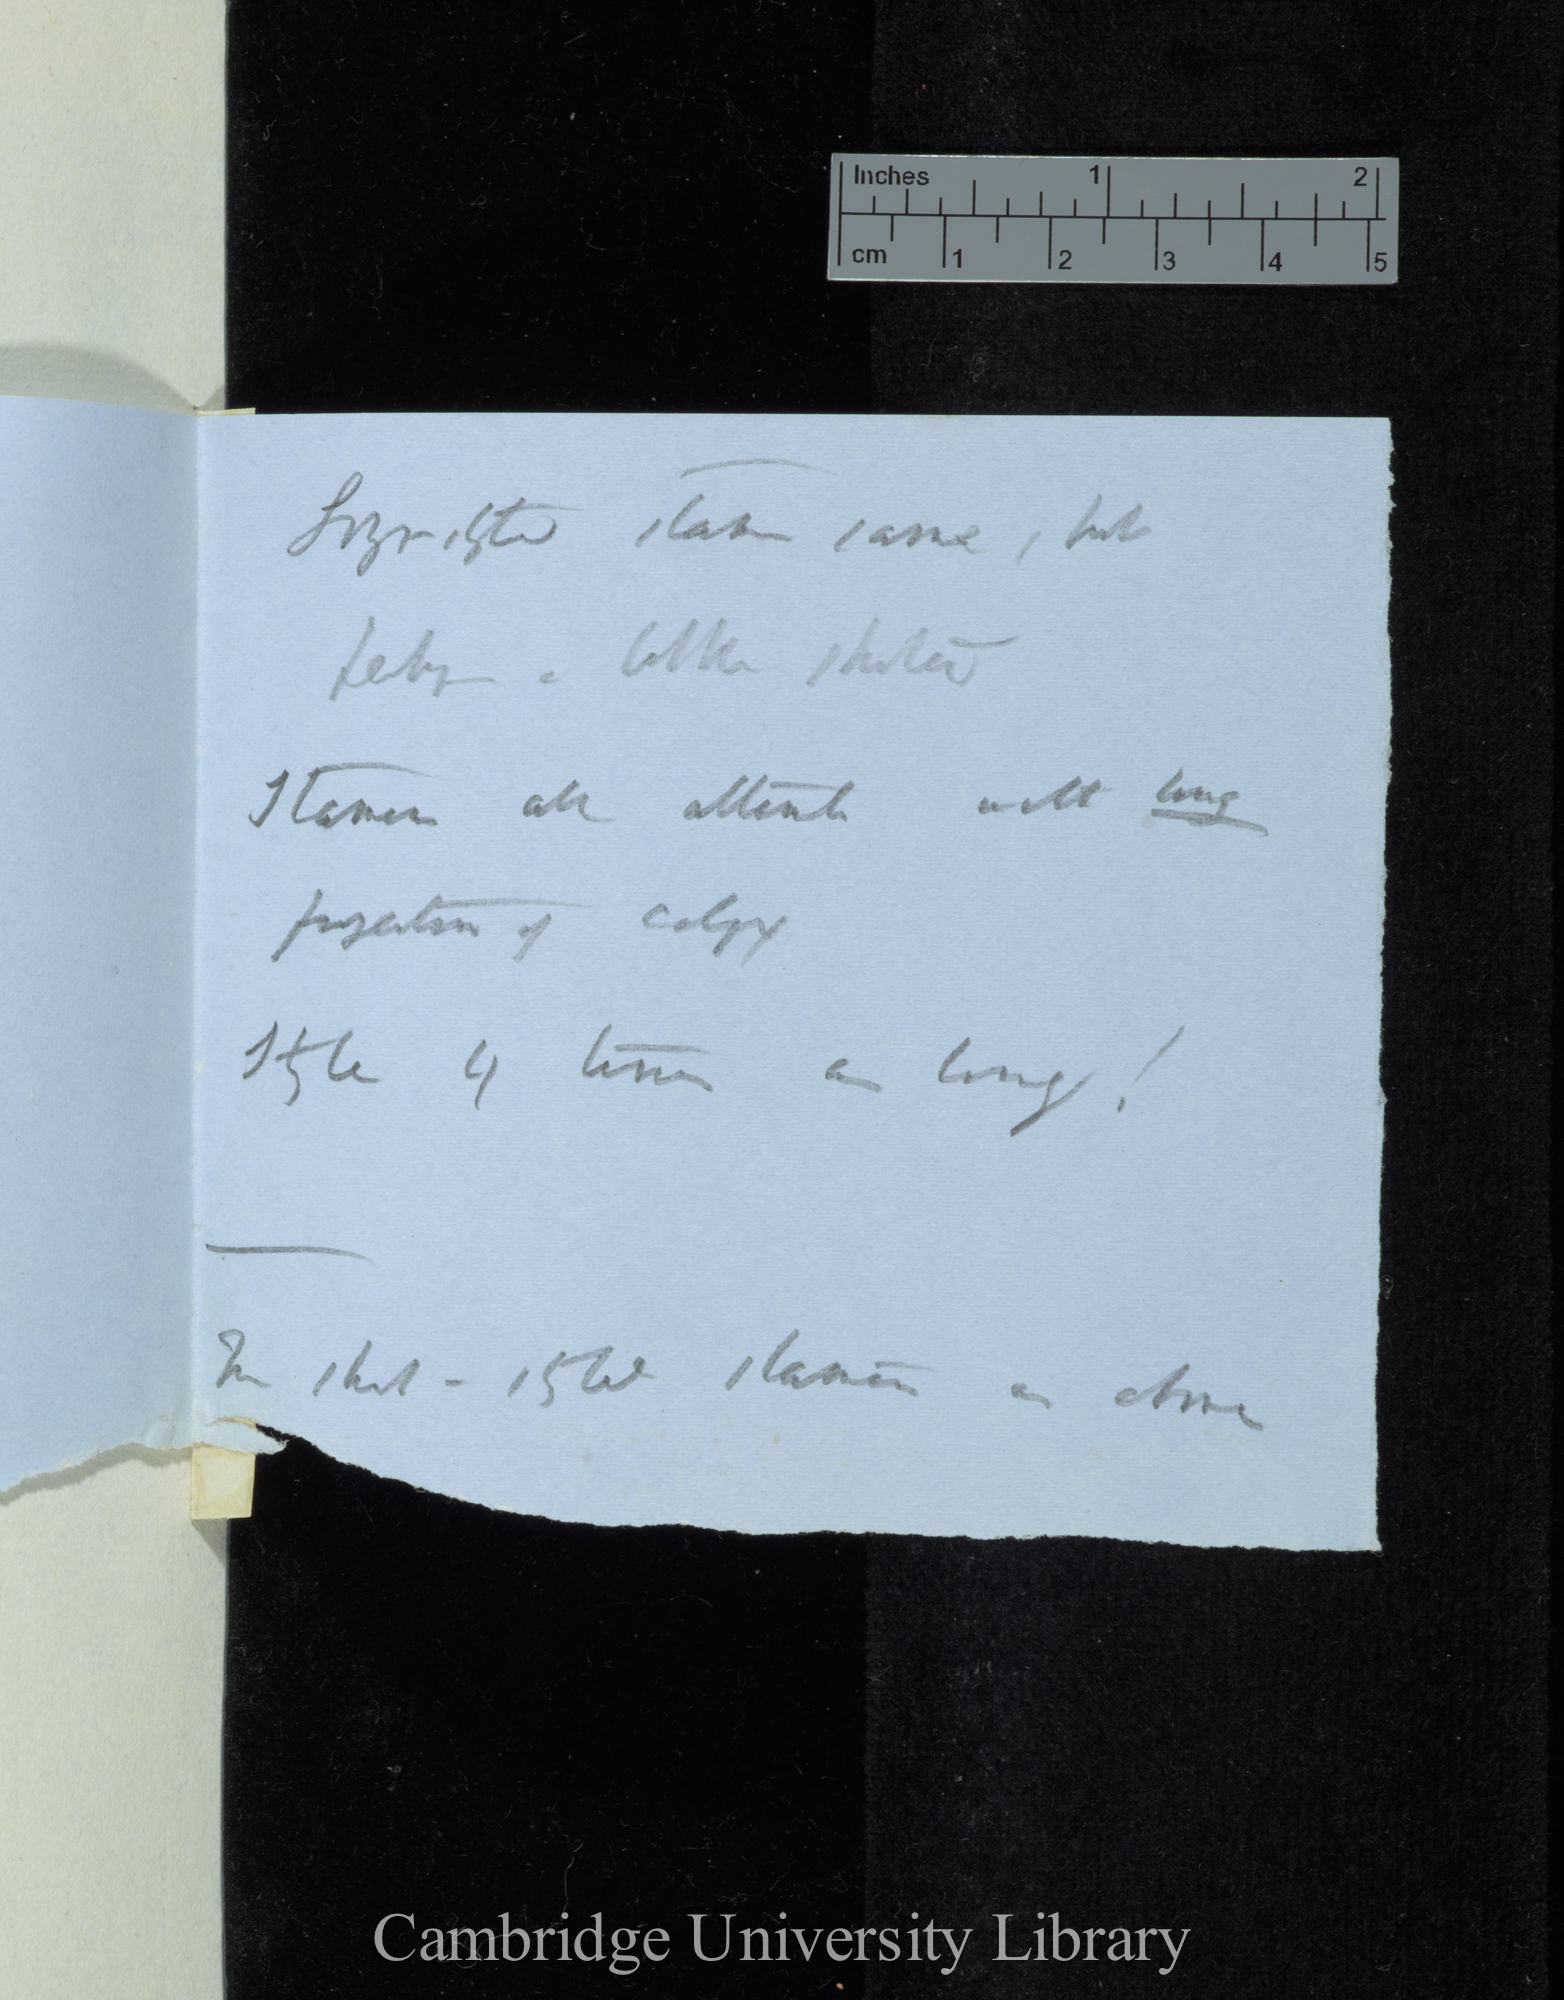 Inches 1 2
cm 1 2 3 4 5
Long-styled stamen same, but
perhaps a little shorter
Stamen alt with long
projection of calyx
Style 4 times as long!
In short-styled stamens as above
Cambridge University Library